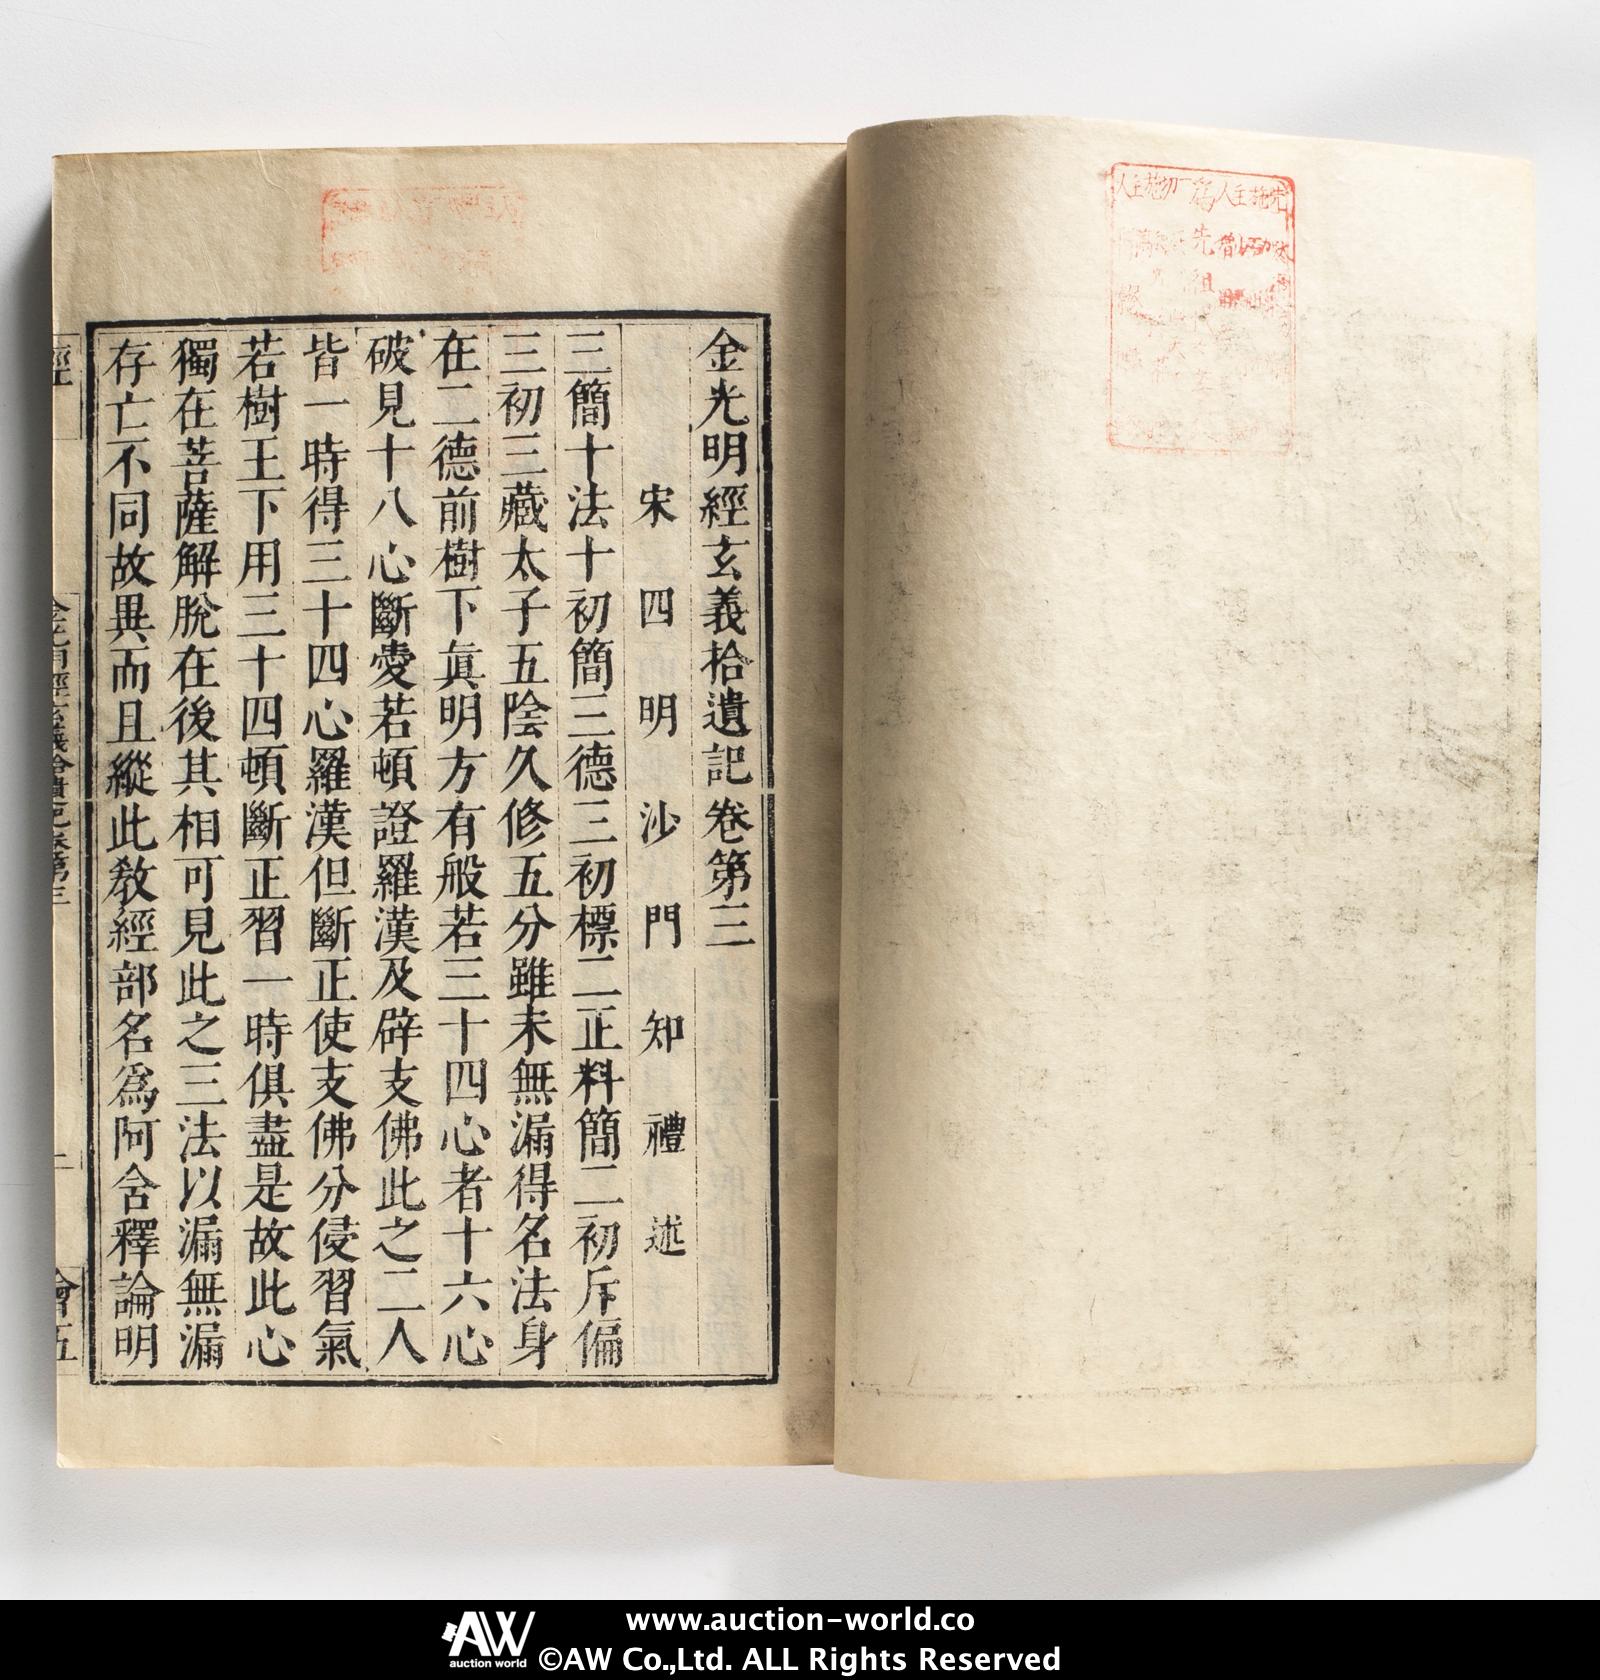 金光明經玄義拾遺記卷第三
宋四明沙門知禮述
三簡十法十初簡三德三初標二正料簡二初斥偏
三初三藏太子五陰久修五分雖未無漏得名法身
在二德前樹下眞明方有般若三十四心者十六心
破見十八心斷愛若頓證羅漢及辟支佛此之二人
皆一時得三十四心羅漢但斷正使支佛分侵習氣
若樹王下用三十四頓斷正習一時俱盡是故此心
獨在菩薩解脫在後其相可見此之三法以漏無漏
存亡不同故異而且縱此敎經部名爲阿含釋論明
www.auction-world.co
AW auction world
©AW Co.,Ltd. ALL Rights Reserved